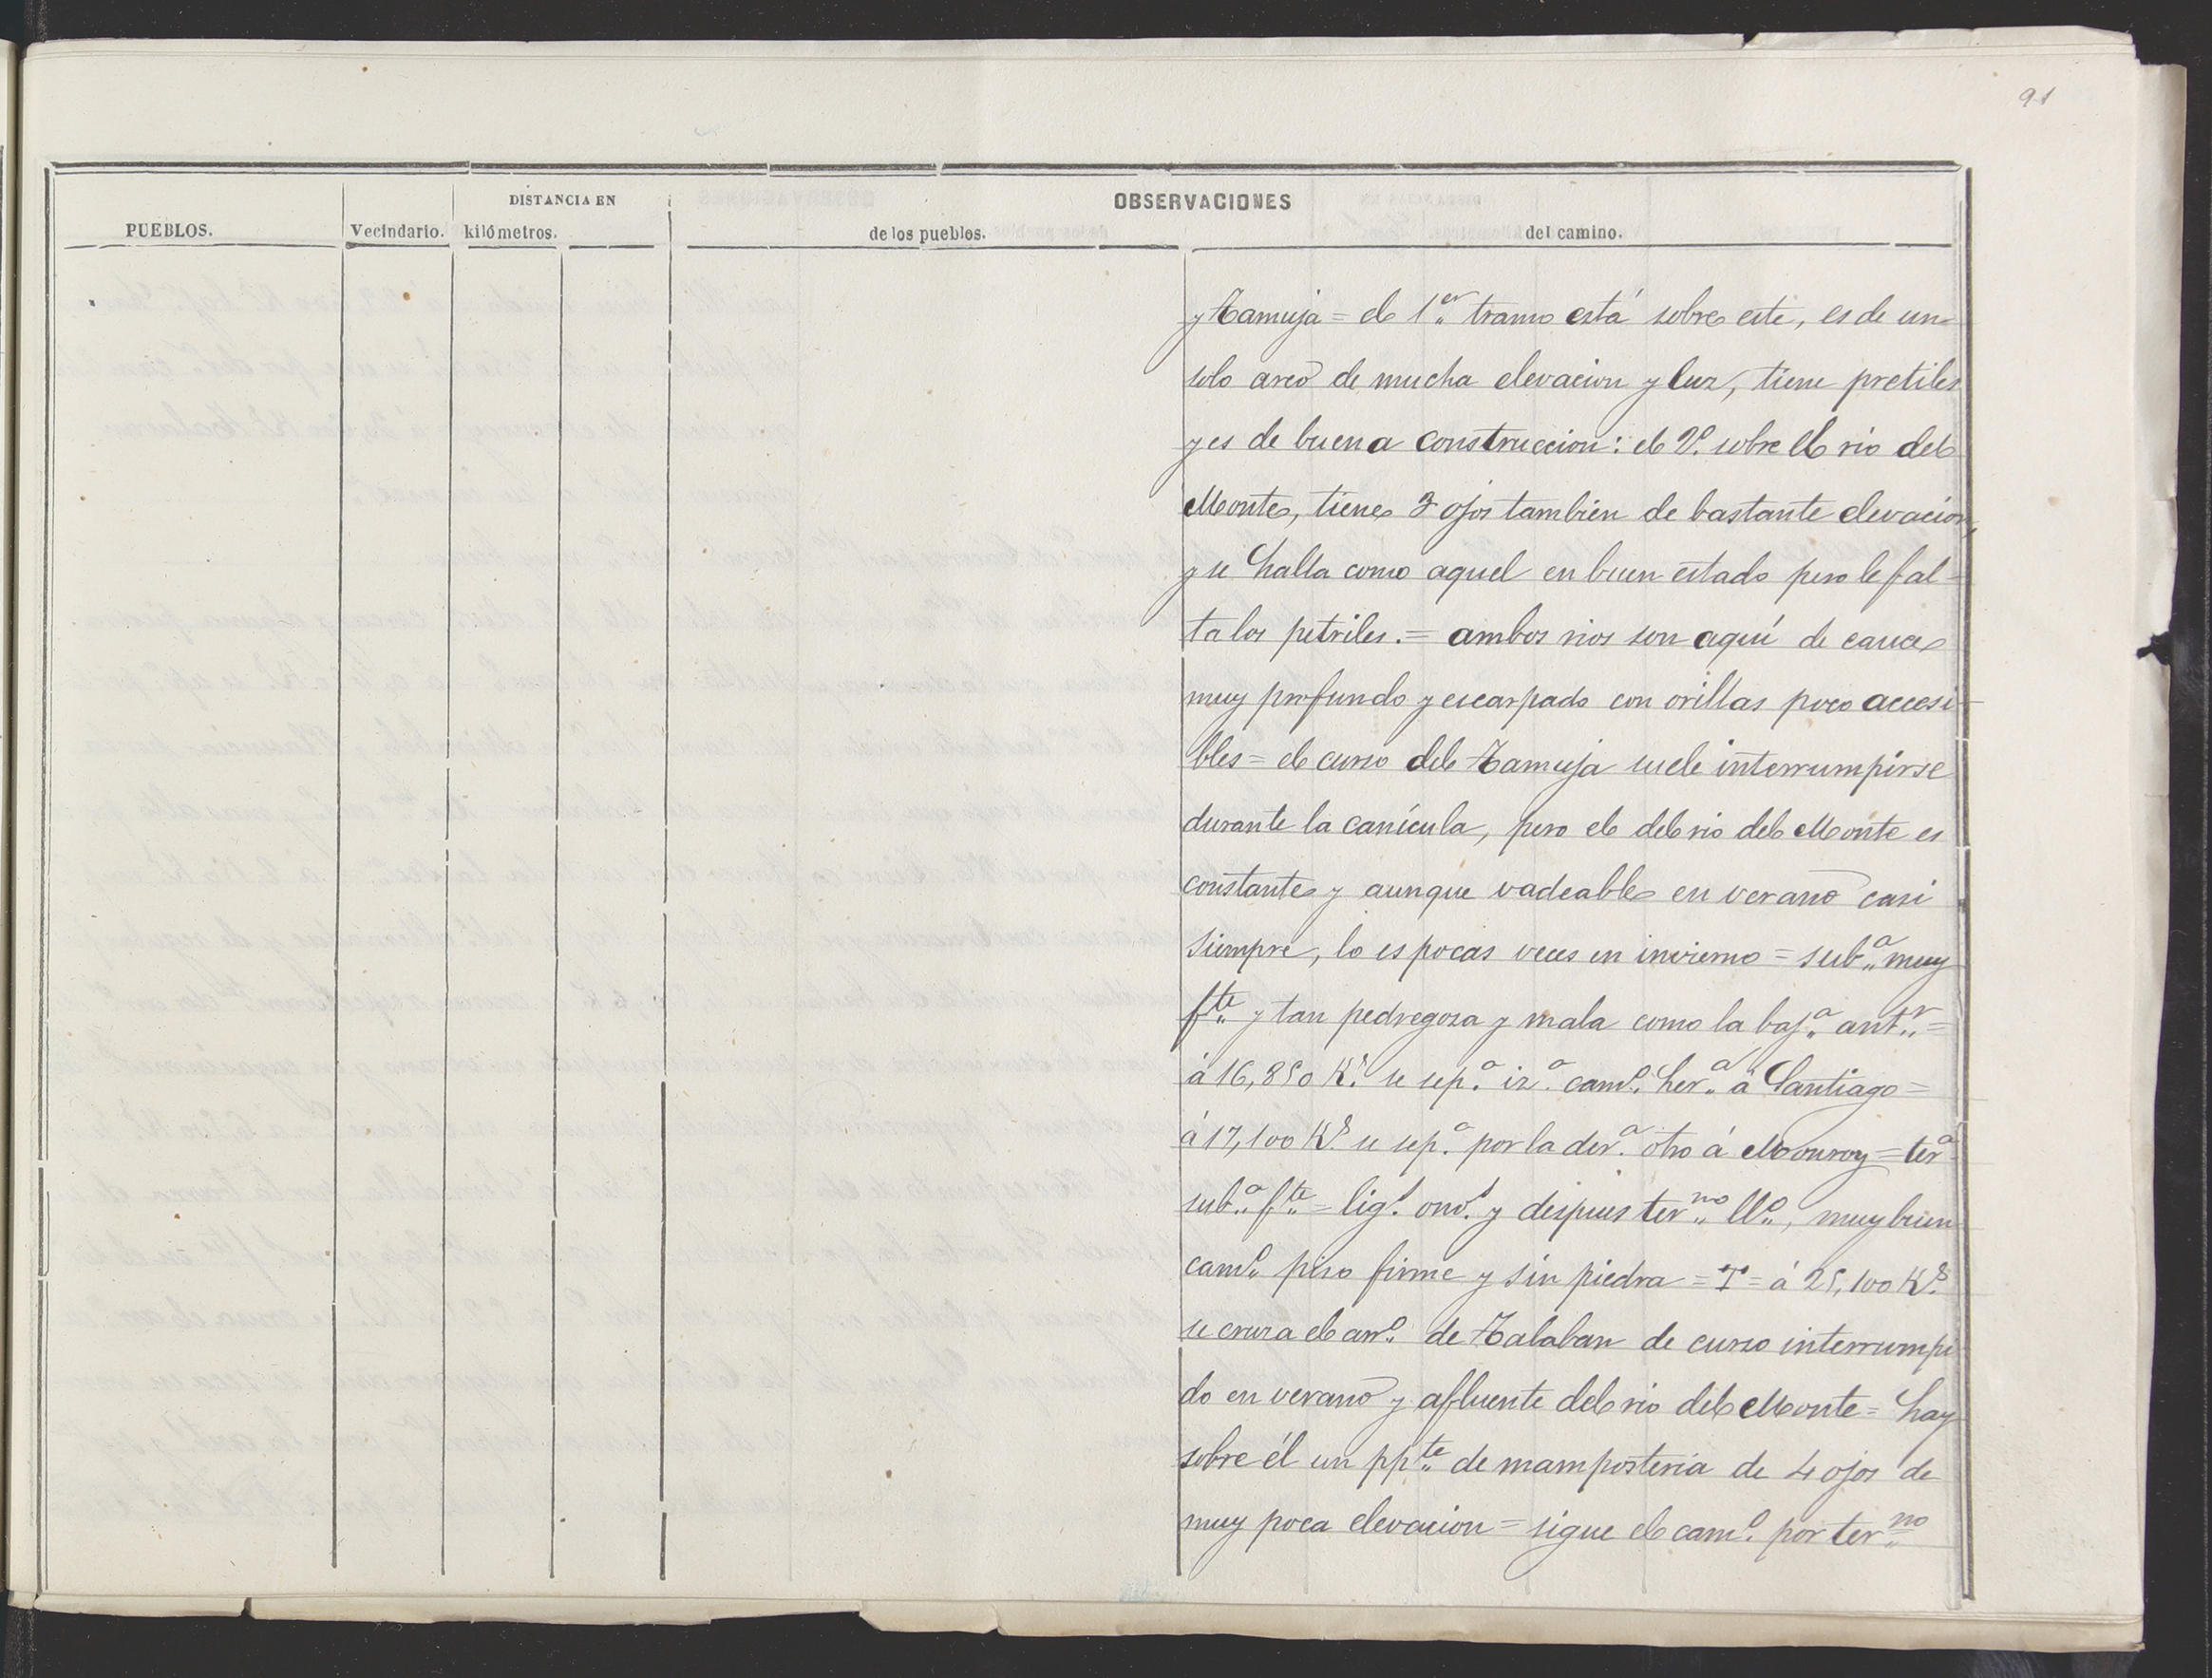 91
DISTANCIA EN
OBSERVACIONES
PUEBLOS. Vecindario. kilómetros. de los pueblos. del camino.
y Tamuja = el 1.er tramo está sobre este, es de un
solo arco de mucha elevacion y luz, tiene pretiles
y es de buena construccion: el 2.º sobre el rio del
Monte, tiene 3 ojos tambien de bastante elevacion,
y se halla como aquel en buen estado pero le fal-
ta los petriles. = ambos rios son aquí de cauce
muy profundo y escarpado con orillas poco accesi-
bles = el curso del Tamuja suele interrumpirse
durante la canícula, pero el del rio del Monte es
constante y aunque vadeable en verano casi
siempre, lo es pocas veces en invierno = sub.a muy
f.te y tan pedregosa y mala como la baj.a ant.r =
á 16,850 K.s se sep.a iz.a cam.o her.a á Santiago =
á 17,100 K.s se sep.a por la der.a otro á Monroy = ter.a
sub.a f.te = lig.s ond.s y despues ter.no ll.o, muy buen
cam.o piso firme y sin piedra = T = á 25,100 K.s
se cruza el arr.o de Talaban de curso interrumpi
do en verano y afluente del rio del Monte = hay
sobre él un pp.te de mampostería de 4 ojos de
muy poca elevacion = sigue el cam.o por ter.no